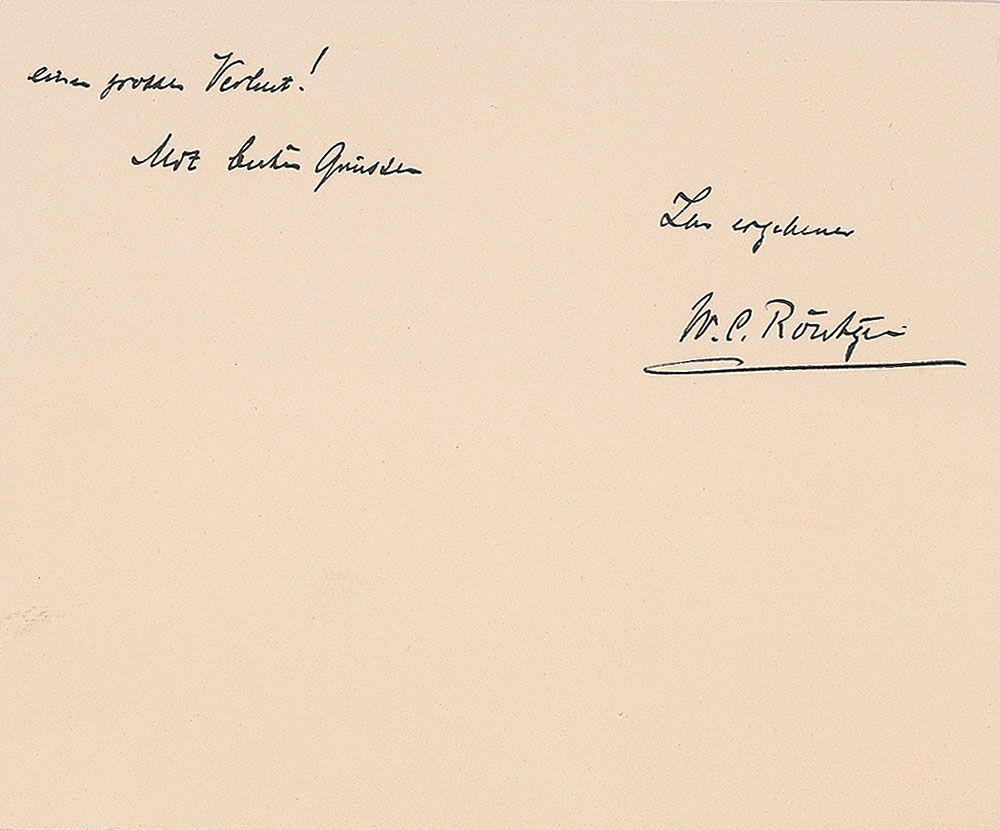 einen grossen Verlust!
Mit besten Grüssen
Ihr ergebener
W. C. Röntgen